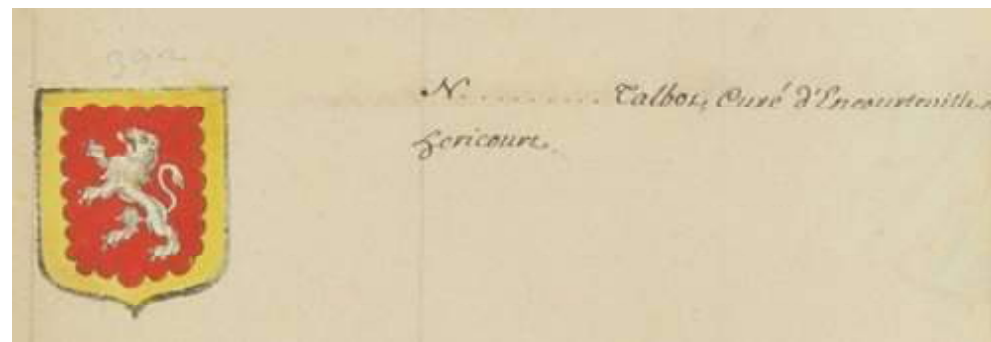 392
N. . . . . . . . . . Talbot, Curé d'Encourteville
hericourt.